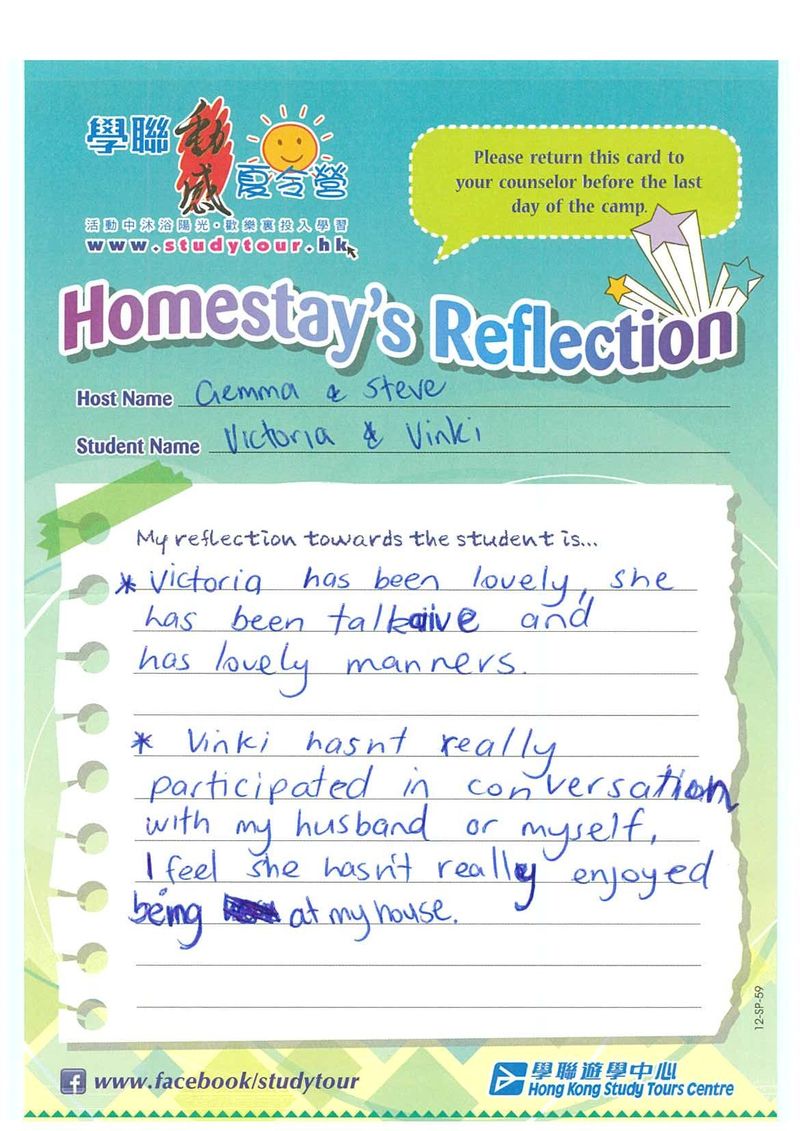 學聯動感夏令營
活動中沐浴陽光·歡樂裏投入學習
www.studytour.hk
Please return this card to
your counselor before the last
day of the camp.
Homestay's Reflection
Host Name Gemma & Steve
Student Name Victoria & Vinki
My reflection towards the student is...
* Victoria has been lovely, she
has been talkaive and
has lovely manners.
* Vinki hasnt really
participated in conversation
with my husband or myself,
I feel she hasn't really enjoyed
being at my house.
12-SP-59
f www.facebook/studytour
學聯遊學中心
Hong Kong Study Tours Centre